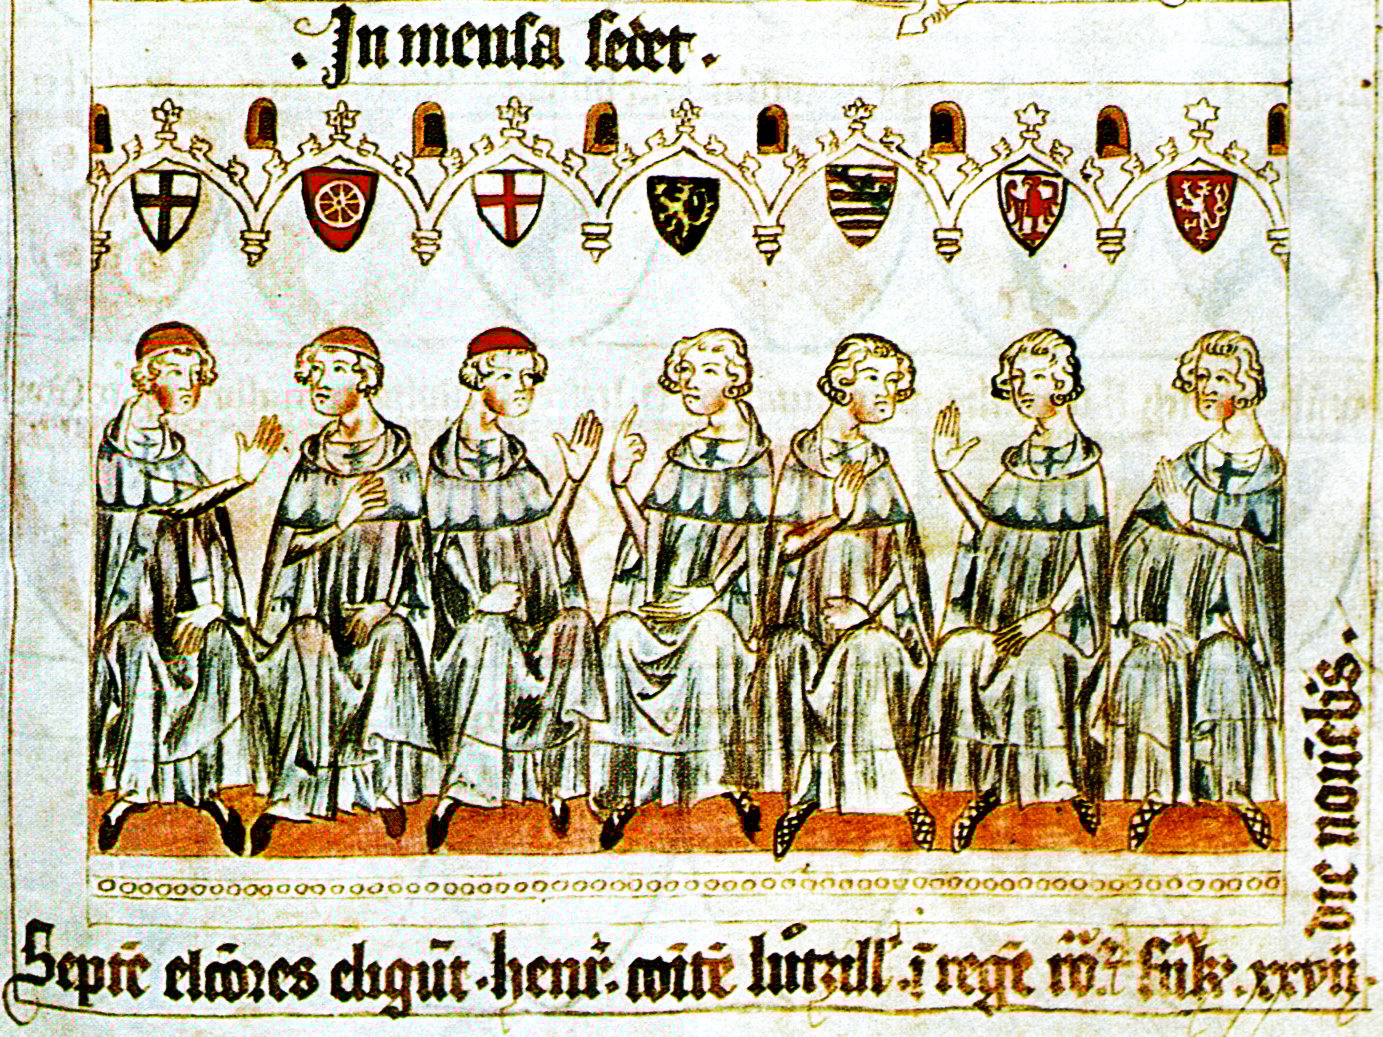 . In mensa sedet .
Septē elcōres eligūt · henr̄ · comitē lutzillb̄ · ī regē rōō ⁊ frāk · xxvii ·
die nouēbis ·